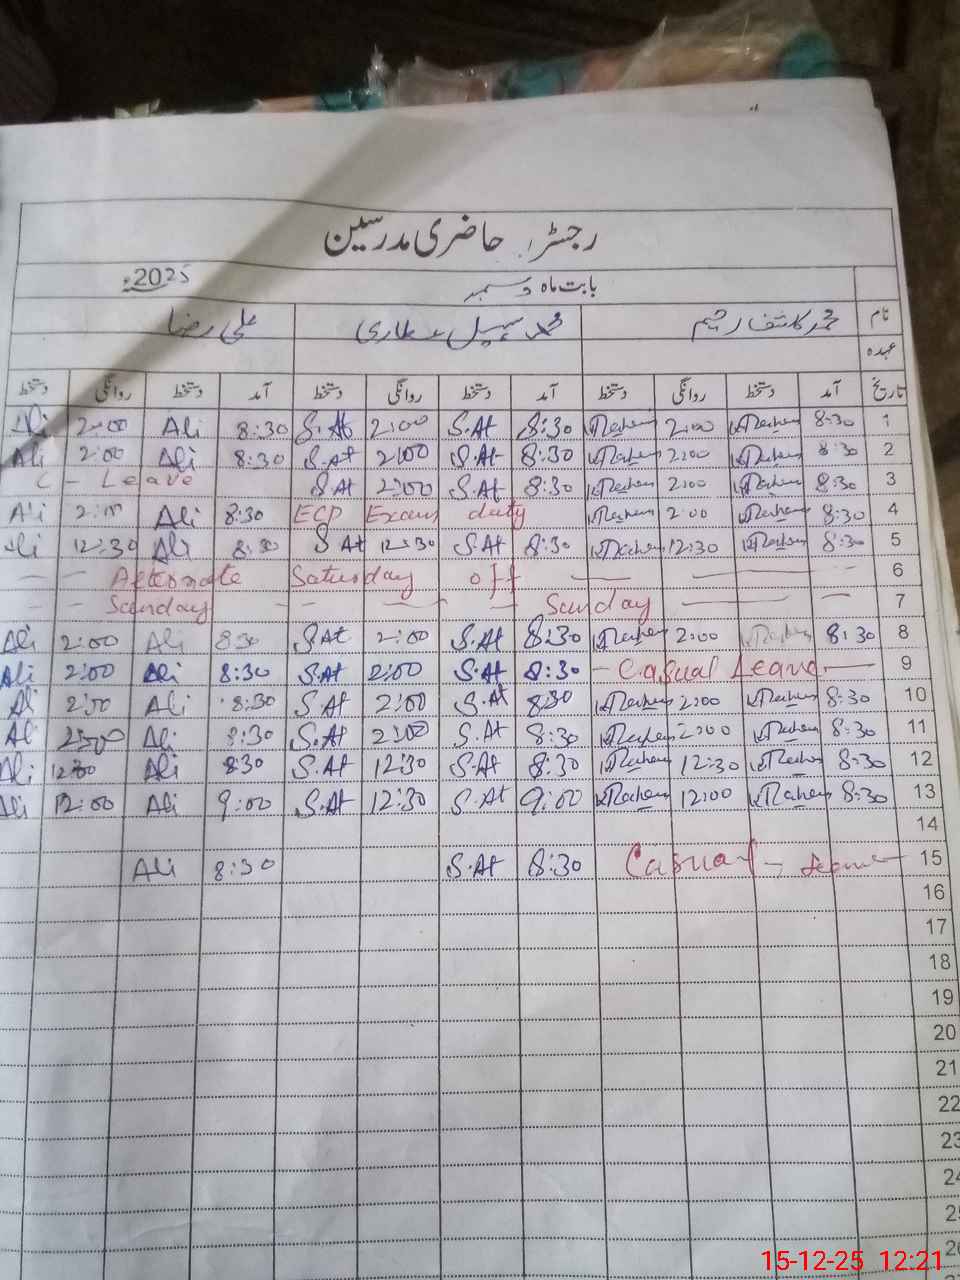 رجسٹر حاضری مدرسین
بابت ماہ دسمبر 2025ء
نام محمد کاشف رحیم محمد سہیل عطاری علی رضا
عہدہ
تاریخ آمد دستخط روانگی دستخط آمد دستخط روانگی دستخط آمد دستخط روانگی دستخط
1 8:30 Raheem 2:00 Raheem 8:30 S.At 2:00 S.At 8:30 Ali 2:00 Ali
2 8:30 Raheem 2:00 Raheem 8:30 S.At 2:00 S.At 8:30 Ali 2:00 Ali
3 8:30 Raheem 2:00 Raheem 8:30 S.At 2:00 S.At C - Leave
4 8:30 Raheem 2:00 Raheem ECP Exam duty 8:30 Ali 2:00 Ali
5 8:30 Raheem 12:30 Raheem 8:30 S.At 12:30 S At 8:30 Ali 12:30 Ali
6 Alternate Saturday off
7 Sunday Sunday
8 8:30 Raheem 2:00 Raheem 8:30 S.At 2:00 S At 8:30 Ali 2:00 Ali
9 Casual Leave 8:30 S.At 2:00 S.At 8:30 Ali 2:00 Ali
10 8:30 Raheem 2:00 Raheem 8:30 S.At 2:00 S.At 8:30 Ali 2:00 Ali
11 8:30 Raheem 2:00 Raheem 8:30 S.At 2:00 S.At 8:30 Ali 2:00 Ali
12 8:30 Raheem 12:30 Raheem 8:30 S.At 12:30 S.At 8:30 Ali Ali
13 8:30 Raheem 12:00 Raheem 9:00 S.At 12:30 S.At 9:00 Ali 12:00 Ali
14
15 Casual - Leave 8:30 S.At 8:30 Ali
16
17
18
19
20
21
22
23
24
25
26
15-12-25 12:21